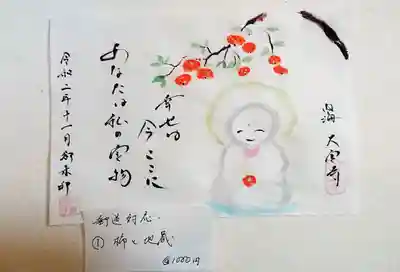 湯 大宝寺
幸せは
今ここに
あなたは私の宝物
令和二年十一月御朱印
郵送対応
① 柿と地蔵
@1000円